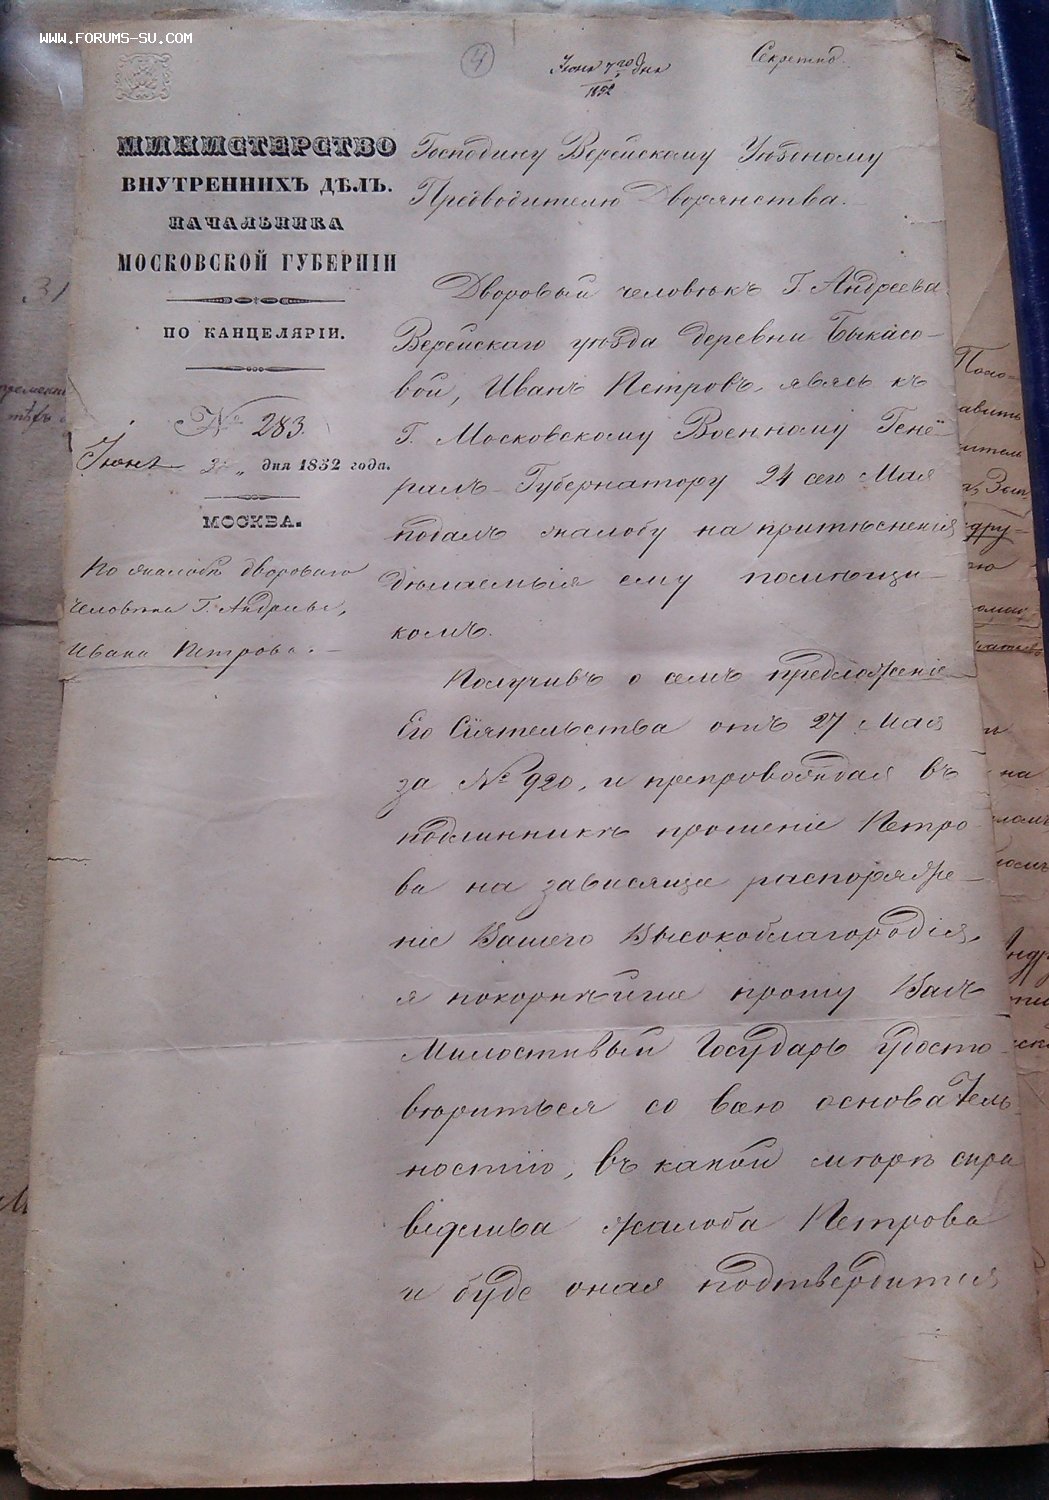 WWW.FORUMS-SU.COM
4
Июня 7го дня
1852
Секретно.
МИНИСТЕРСТВО
ВНУТРЕННИХЪ ДѢЛЪ.
НАЧАЛЬНИКА
МОСКОВСКОЙ ГУБЕРНІИ
ПО КАНЦЕЛЯРІИ.
№ 283.
Июня „ дня 1852 года.
МОСКВА.
По жалобѣ двороваго
человѣка Г. Андреева,
Ивана Петрова.
Господину Верейскому Уѣздному
Предводителю Дворянства.
Дворовый человѣкъ Г. Андреева
Верейскаго уѣзда деревни Быкасо-
вой, Иванъ Петровъ, явясь къ
Г. Московскому Военному Гене-
ралъ-Губернатору 24 сего Мая
подалъ жалобу на притѣсненія
дѣлаемыя ему помѣщи-
комъ.
Получивъ о семъ предложеніе
Его Сіятельства отъ 27 Мая
за № 920, и препровождая въ
подлинникѣ прошеніе Петро-
ва на зависящее распоряже-
ніе Вашего Высокоблагородія,
я покорнѣйше прошу Васъ
Милостивый Государь удосто-
вѣриться со всею основатель-
ностію, въ какой мѣрѣ спра
ведлива жалоба Петрова
и буде оная подтвердится